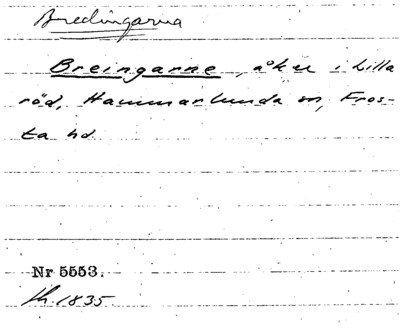 Bredingarna
Breingarne, åker i Lilla
röd, Hammarlunda sn, Fros-
ta hd
Nr 5553.
1835.